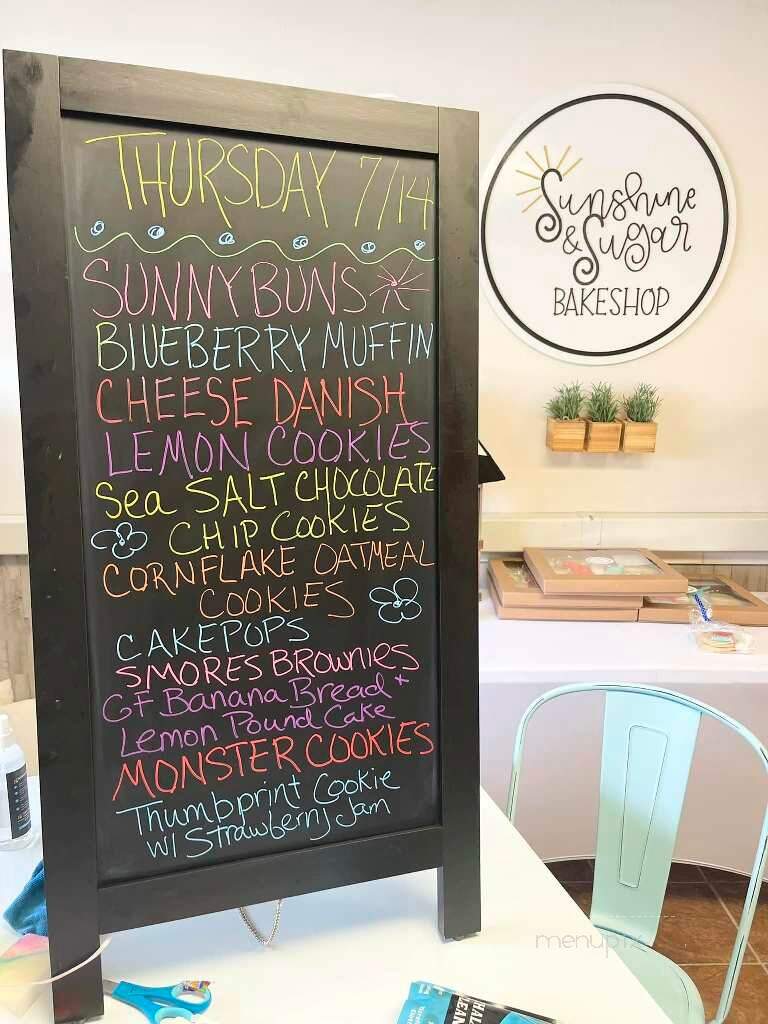 THURSDAY 7/14
SUNNY BUNS
BLUEBERRY MUFFIN
CHEESE DANISH
LEMON COOKIES
Sea SALT CHOCOLATE
CHIP COOKIES
CORNFLAKE OATMEAL
COOKIES
CAKEPOPS
SMORES BROWNIES
GF Banana Bread +
Lemon Pound Cake
MONSTER COOKIES
Thumbprint Cookie
w/ Strawberry Jam
Sunshine
& Sugar
BAKESHOP
menupix